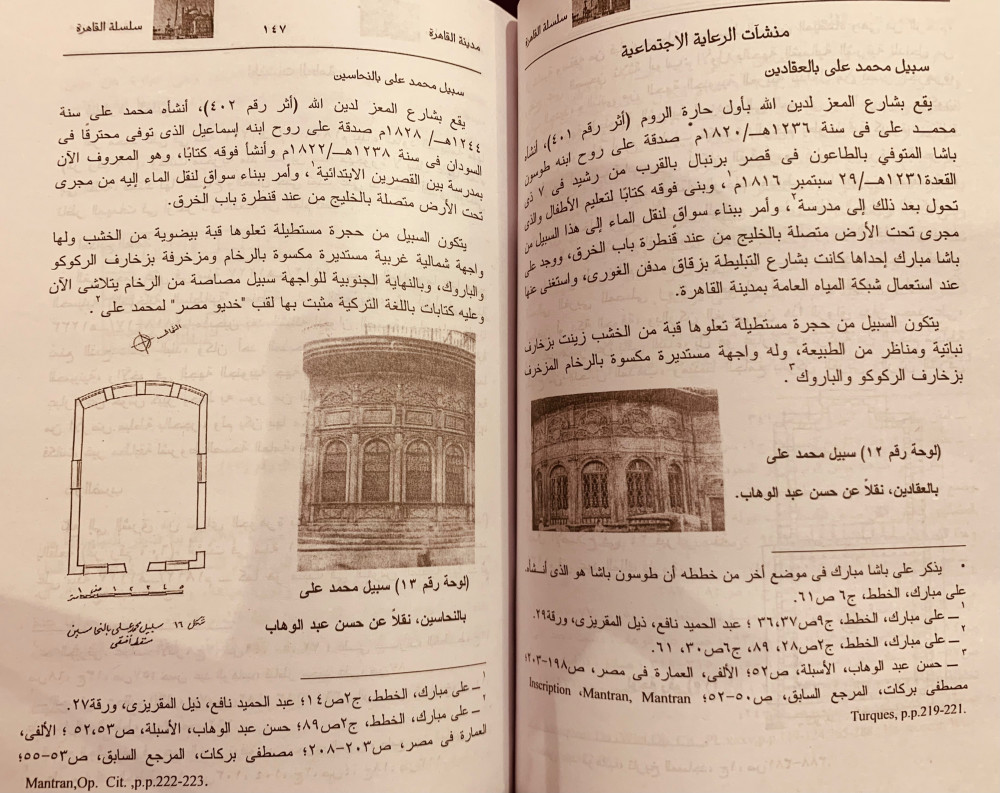 سلسلة القاهرة
منشآت الرعاية الاجتماعية
سبيل محمد على بالعقادين
يقع بشارع المعز لدين الله بأول حارة الروم (أثر رقم ٤٠١)، أنشأه
محمـد على فى سنة ١٢٣٦هـــ/١٨٢٠م• صدقة على روح ابنه طوسون
باشا المتوفي بالطاعون فى قصر برنبال بالقرب من رشيد فى ٧ ذى
القعدة١٢٣١هـــ/٢٩ سبتمبر ١٨١٦م١، وبنى فوقه كتابًا لتعليم الأطفال والذى
تحول بعد ذلك إلى مدرسة٢، وأمر ببناء سواقٍ لنقل الماء إلى هذا السبيل من
مجرى تحت الأرض متصلة بالخليج من عند قنطرة باب الخرق، ووجد على
باشا مبارك إحداها كانت بشارع التبليطة بزقاق مدفن الغورى، واستغنى عنها
عند استعمال شبكة المياه العامة بمدينة القاهرة.
يتكون السبيل من حجرة مستطيلة تعلوها قبة من الخشب زينت بزخارف
نباتية ومناظر من الطبيعة، وله واجهة مستديرة مكسوة بالرخام المزخرف
بزخارف الركوكو والباروك٣.
(لوحة رقم ١٢) سبيل محمد على
بالعقادين، نقلاً عن حسن عبد الوهاب.
• يذكر على باشا مبارك فى موضع أخر من خططه أن طوسون باشا هو الذى أنــشأه.
على مبارك، الخطط، ج٦ ص٦١.
١ــ على مبارك، الخطط، ج٩ص٣٦،٣٧ ؛ عبد الحميد نافع، ذيل المقريزى، ورقة٢٩.
٢ــ على مبارك، الخطط، ج٢ص٢٨، ٨٩، ج٦ص٣٠، ٦١.
٣ــ حسن عبد الوهاب، الأسبلة، ص٥٢؛ الألفى، العمارة فى مصر، ص١٩٨-٢٠٣؛
مصطفى بركات، المرجع السابق، ص٥٠-٥٢؛ Inscription ،Mantran, Mantran
Turques, p.p.219-221.
سلسلة القاهرة
١٤٧
مدينة القاهرة
سبيل محمد على بالنحاسين
يقع بشارع المعز لدين الله (أثر رقم ٤٠٢)، أنشأه محمد على سنة
١٢٤٤هـــ/ ١٨٢٨م صدقة على روح ابنه إسماعيل الذى توفى محترقًا فى
السودان فى سنة ١٢٣٨هـــ/١٨٢٢م وأنشأ فوقه كتابًا، وهو المعروف الآن
بمدرسة بين القصرين الابتدائية١، وأمر ببناء سواقٍ لنقل الماء إليه من مجرى
تحت الأرض متصلة بالخليج من عند قنطرة باب الخرق.
يتكون السبيل من حجرة مستطيلة تعلوها قبة بيضوية من الخشب ولها
واجهة شمالية غربية مستديرة مكسوة بالرخام ومزخرفة بزخارف الركوكو
والباروك، وبالنهاية الجنوبية للواجهة سبيل مصاصة من الرخام يتلاشى الآن
وعليه كتابات باللغة التركية مثبت بها لقب "خديو مصر" لمحمد على٢.
(لوحة رقم ١٣) سبيل محمد على
بالنحاسين، نقلاً عن حسن عبد الوهاب
شكل ١٦ سبيل محمد على بالنحاسين
مسقط أفقى
١ــ على مبارك، الخطط، ج٢ص١٤؛ عبد الحميد نافع، ذيل المقريزى، ورقة٢٧.
٢ــ على مبارك، الخطط، ج٢ص٨٩؛ حسن عبد الوهاب، الأسبلة، ص٥٢،٥٣ ؛ الألفى،
العمارة فى مصر، ص٢٠٣-٢٠٨؛ مصطفى بركات، المرجع السابق، ص٥٣-٥٥؛
Mantran,Op. Cit. ,p.p.222-223.